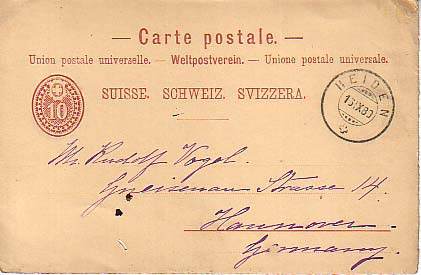 — Carte postale. —
Union postale universelle. — Weltpostverein. — Unione postale universale.
SUISSE. SCHWEIZ. SVIZZERA.
10
HEIDEN
Mr. Rudolf Vogel.
Gneisenau Strasse 14.
Hannover.
Germany.